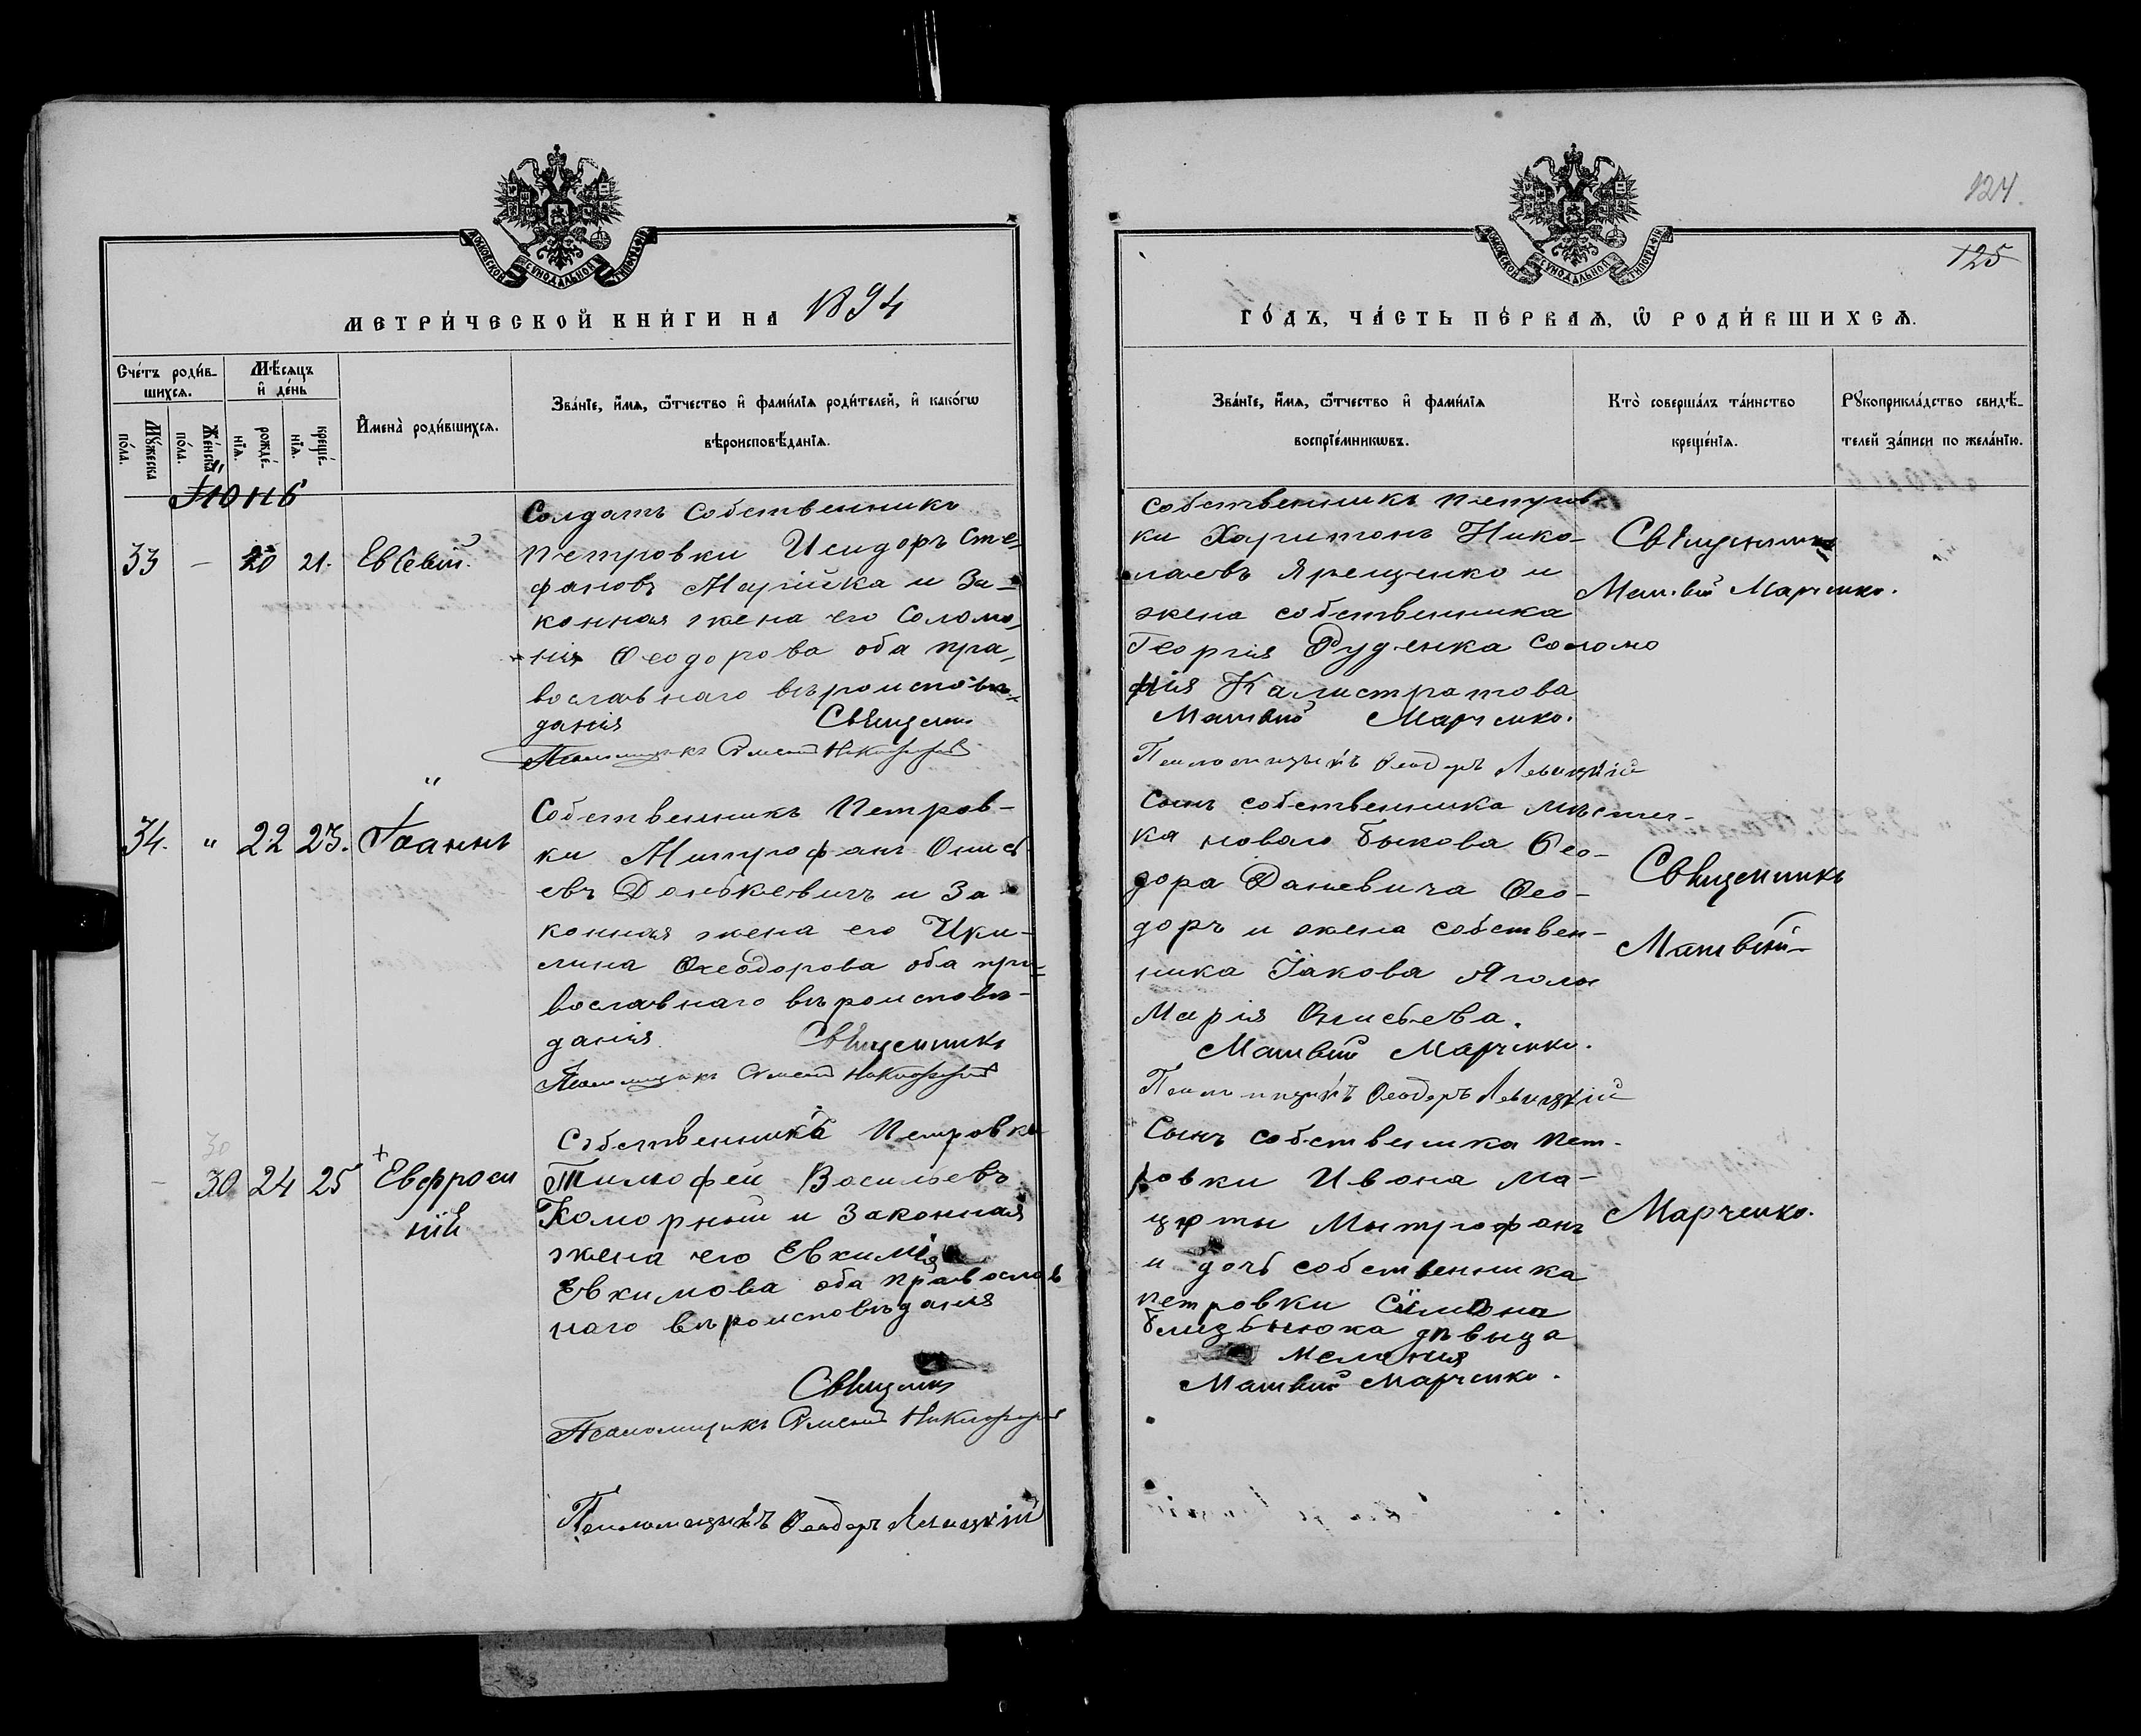 МОСКОВСКОЙ СѴНОДАЛЬНОЙ ТИПОГРАФІИ
МЕТРИ́ЧЕСКОЙ КНИ́ГИ НА 1894
Сче́тъ роди́в-
шихсѧ.
Мѣ́сѧцъ
и҆ де́нь
Мꙋ́жеска
по́ла.
Же́нска
по́ла.
рожде́-
нїѧ.
креще́-
нїѧ.
И҆мена̀ роди́вшихсѧ.
Зва́нїе, и҆́мѧ, ѻ҆́тчество и҆ фами́лїѧ роди́телей, и҆ како́гѡ
вѣроисповѣ́данїѧ.
Іюнь
33 — 20 21. Евсевій.
Солдатъ Собственникъ
Петровки Исидоръ Сте-
фановъ и За-
конная жена его Соломо-
нія Ѳеодорова оба пра-
вославнаго вѣроисповѣ-
данія Священникъ
Псаломщикъ
34. " 22 23. Іоаннъ
Собственникъ Петров-
ки Митрофанъ Онись
евъ Донькевичъ и За-
конная жена его Аки-
лина Ѳеодорова оба пра-
вославнаго вѣроисповѣ-
данія Священникъ
Псаломщикъ
30
— 30 24 25 Евфроси
нія
Собственника Петровки
Тимофей Васильевъ
Коморный и Законная
жена его Евкимія
Евкимова оба православ
наго вѣроисповѣданія
Священникъ
Псаломщикъ
Псаломщикъ Ѳеодоръ Левицкій
124.
125
МОСКОВСКОЙ СѴНОДАЛЬНОЙ ТИПОГРАФІИ
ГО́ДЪ, ЧА́СТЬ ПЕ́РВАѦ, Ѡ҆ РОДИ́ВШИХСѦ.
Зва́нїе, и҆́мѧ, ѻ҆́тчество и҆ фами́лїѧ
воспрїе́мникѡвъ.
Кто̀ соверша́лъ та́инство
креще́нїѧ.
Рꙋкоприкла́дство свидѣ́-
телей за́писи по жела́нїю.
собственникъ Петров
ки Харитонъ Нико-
лаевъ Ярещенко и
жена собственника
Георгія Руденка Соломо
нія Калистратова
Матвій Марченко.
Псаломщикъ Ѳеодоръ Левицкій
Священникъ
Матвій Марченко.
Сынъ собственника мѣстеч-
ка новаго Быкова Ѳео-
дора Даневича Ѳео-
доръ и жена собствен-
ника Іакова Яголы
Марія Онисьева.
Матвій Марченко.
Псаломщикъ Ѳеодоръ Левицкій
Священникъ
Матвій
Сынъ собственика Пет-
ровки Ивана Ма-
цюты Митрофанъ
и дочь собственника
Петровки Симона
дѣвица
Меланія
Матвій Марченко.
Марченко.